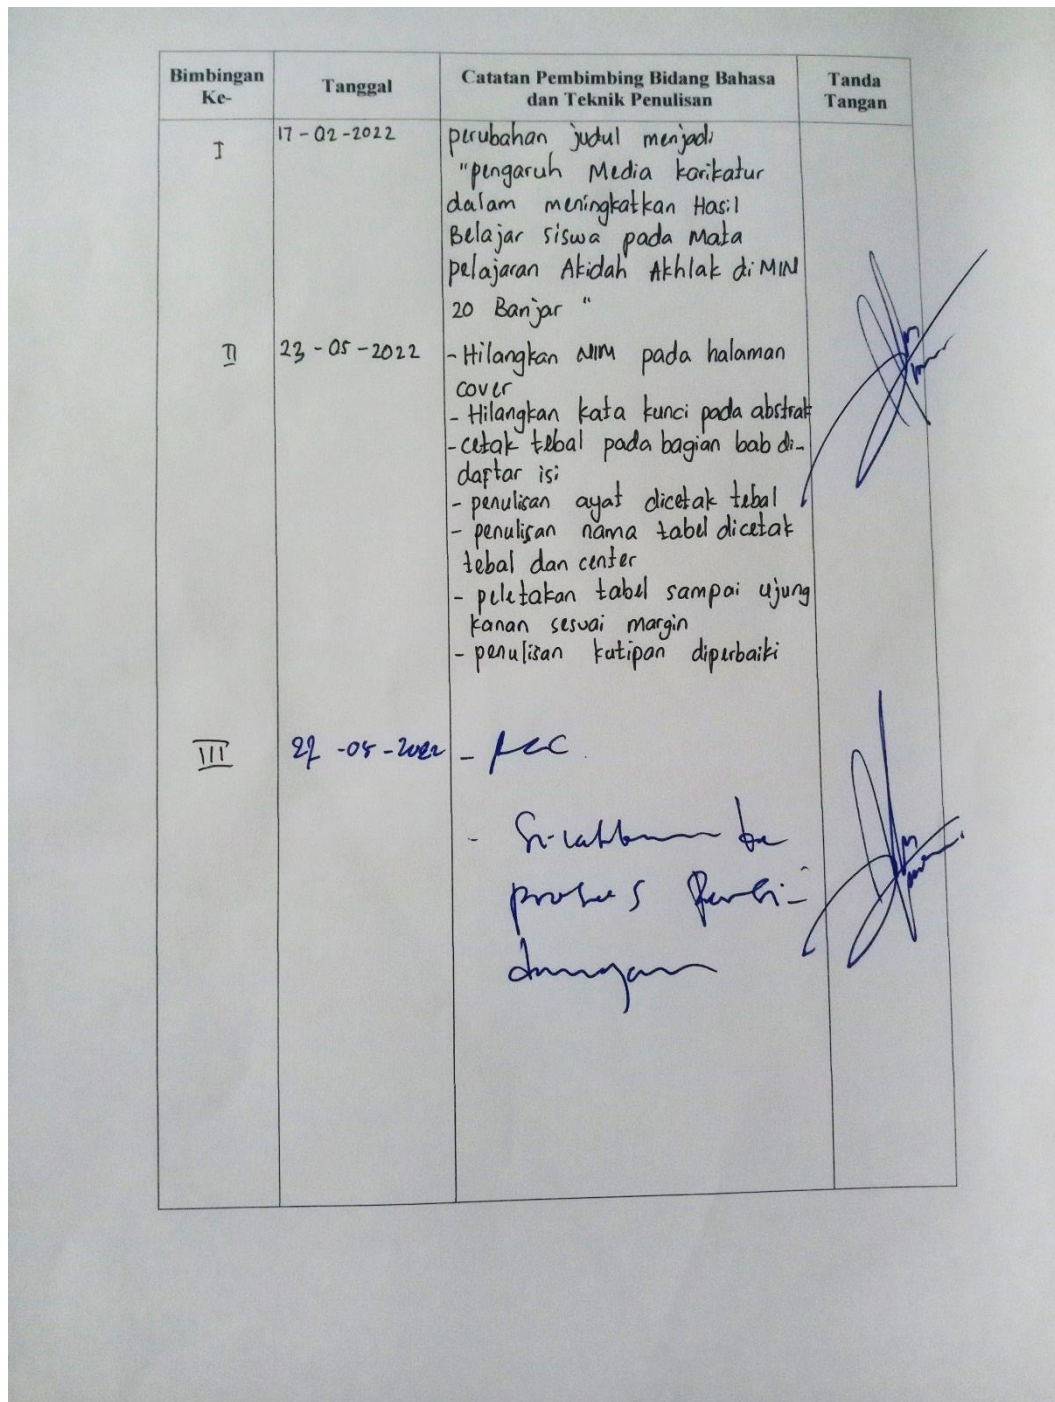 Bimbingan Ke-
Tanggal
Catatan Pembimbing Bidang Bahasa
dan Teknik Penulisan
Tanda Tangan
I
17-02-2022
perubahan judul menjadi
"pengaruh Media karikatur
dalam meningkatkan Hasil
Belajar siswa pada Mata
pelajaran Akidah Akhlak di MIN
20 Banjar "
II
23-05-2022
- Hilangkan NIM pada halaman
cover
- Hilangkan kata kunci pada abstrak
- cetak tebal pada bagian bab di-
daftar isi
- penulisan ayat dicetak tebal
- penulisan nama tabel dicetak
tebal dan center
- peletakan tabel sampai ujung
kanan sesuai margin
- penulisan kutipan diperbaiki
III
-05-2022
- ACC
- Silahkan ke
proses Persi-
dangan